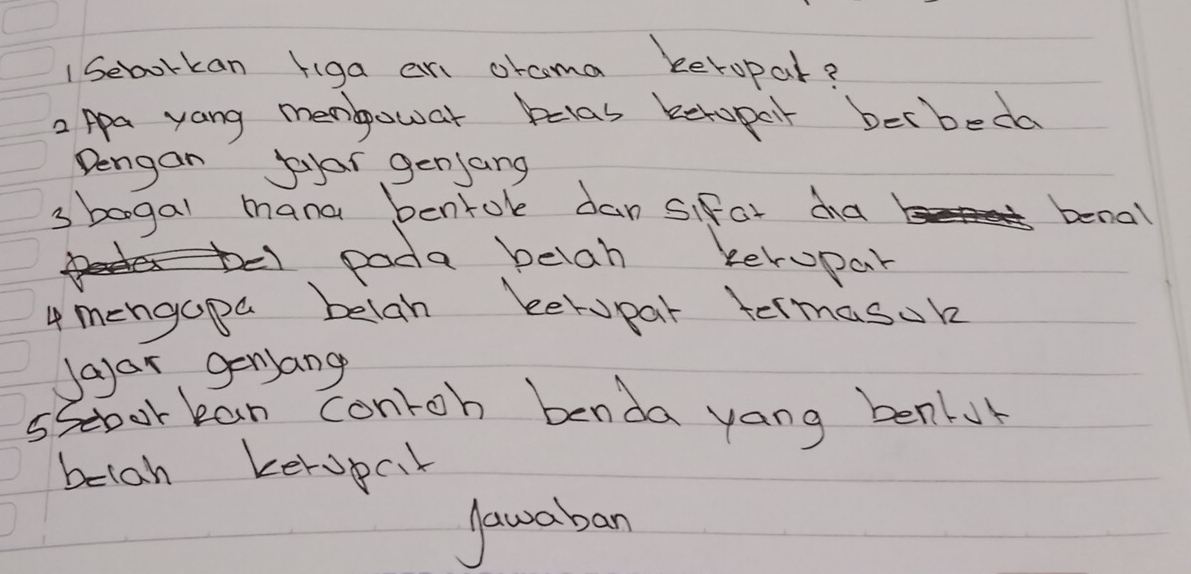 1 Sebotkan tiga ciri otama ketupat?
2 Apa yang mengowat belas ketupat berbeda
Dengan jajar genjang
3 bagai mana bentok dan sifat dia benal
pada belah ketupat
4 mengapa belah ketupat termasuk
jajar genjang
5 Sebotkan contoh benda yang bentut
belah ketupat
Jawaban